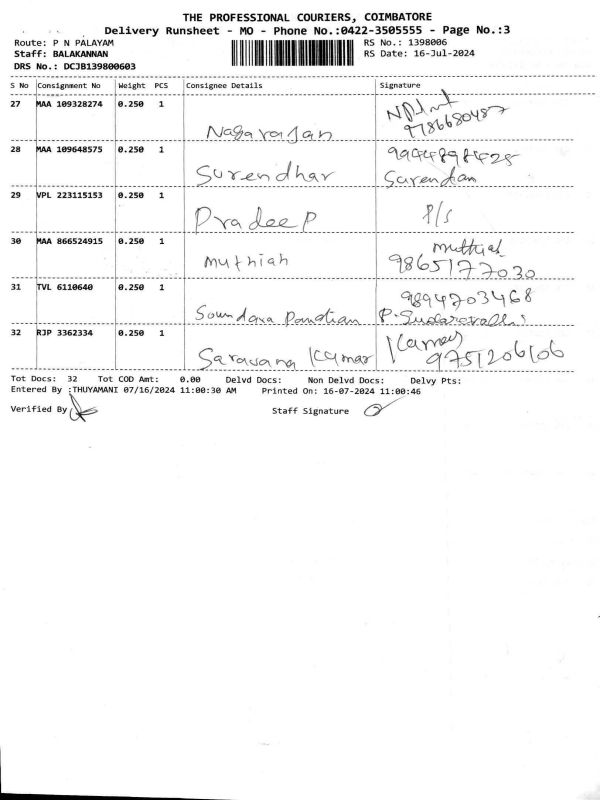 THE PROFESSIONAL COURIERS, COIMBATORE
Delivery Runsheet - MO - Phone No.:0422-3505555 - Page No.:3
Route: P N PALAYAM RS No.: 1398006
Staff: BALAKANNAN RS Date: 16-Jul-2024
DRS No.: DCJB139800603
S No Consignment No Weight PCS Consignee Details Signature
27 MAA 109328274 0.250 1
Nagarajan 9786680487
28 MAA 109648575 0.250 1 9944898425
Surendhar Surendan
29 VPL 223115153 0.250 1
Pradeep P/s
30 MAA 866524915 0.250 1 muthiah
muthiah 9865177030
31 TVL 6110640 0.250 1 9894703468
Soundara Pandian P. Sudaravalli
32 RJP 3362334 0.250 1 Kumar
Saravana Kumar 9751206106
Tot Docs: 32 Tot COD Amt: 0.00 Delvd Docs: Non Delvd Docs: Delvy Pts:
Entered By :THUYAMANI 07/16/2024 11:00:30 AM Printed On: 16-07-2024 11:00:46
Verified By Staff Signature